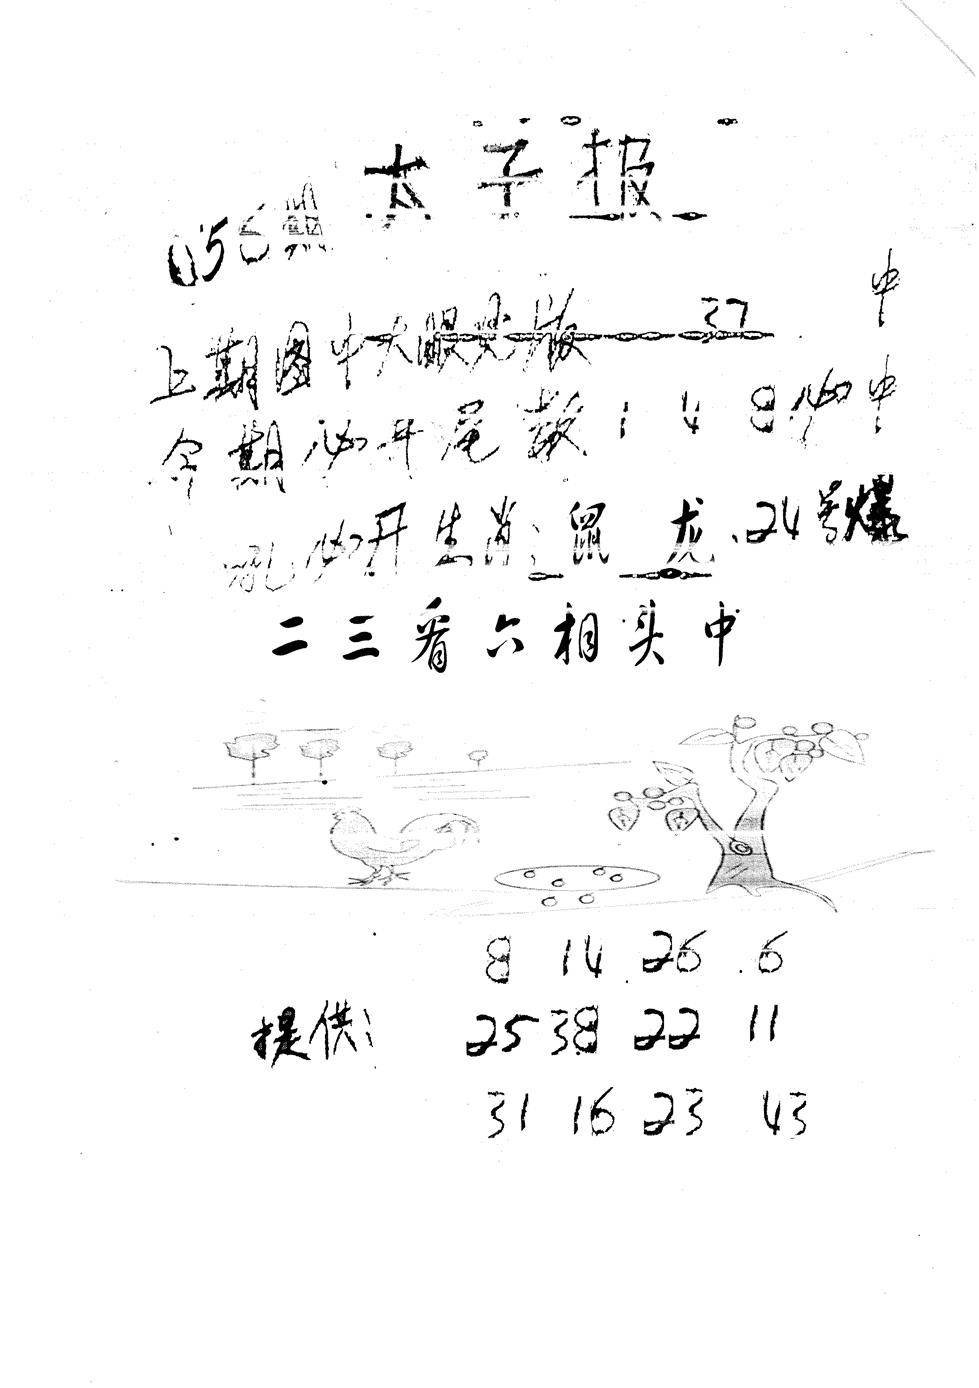 太子报
056期
上期图中大眼处版 37 中
今期必开尾数 1 4 8 必中
必开生肖：鼠 龙.24号爆
二三看六相头中
8 14 26 6
提供： 25 38 22 11
31 16 23 43